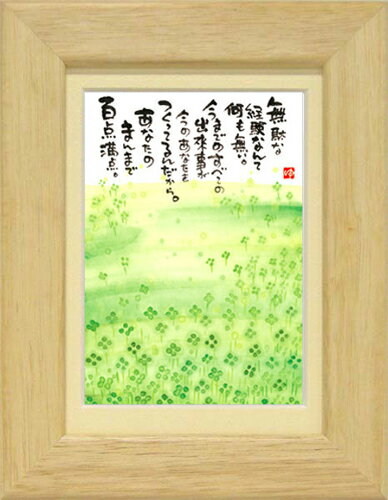 無駄な
経験なんて
何も無い。
今までのすべての
出来事が
今のあなたを
つくってるんだから。
あなたの
まんまで
百点満点。
ゆ